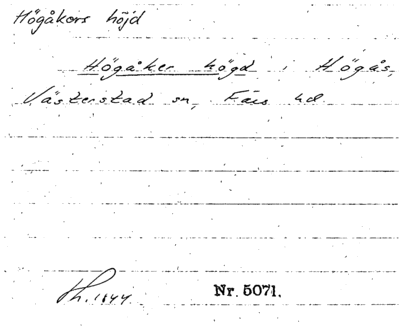 Högåkers höjd
Högåker högd i Högås,
Västerstad sn, Färs hd
Th. 1844.
Nr. 5071.